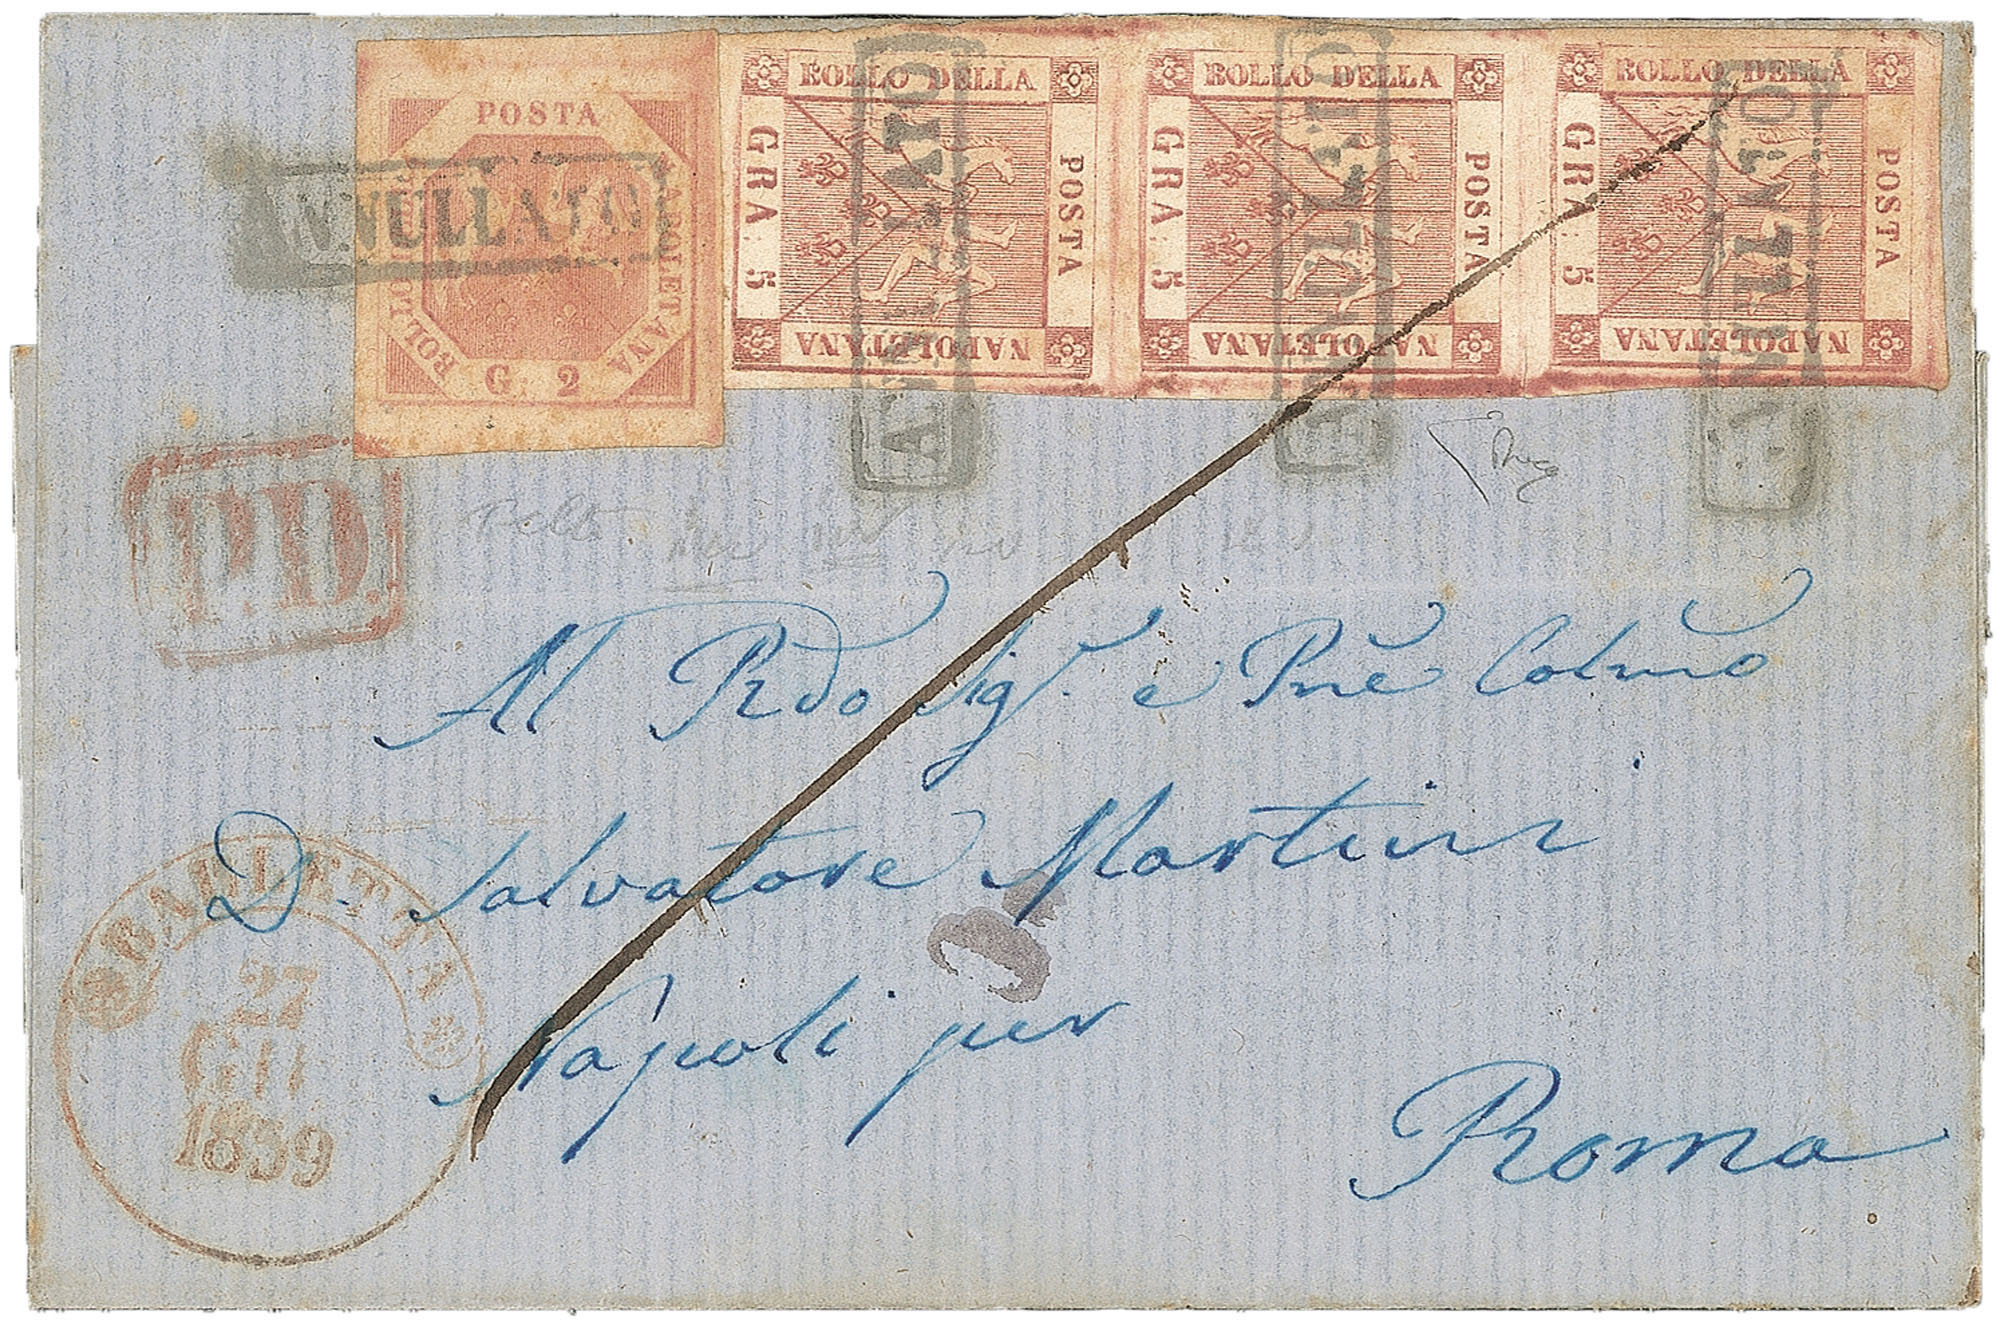 POSTA NAPOLETANA BOLLO G. 2
BOLLO DELLA POSTA NAPOLETANA GRA 5
BOLLO DELLA POSTA NAPOLETANA GRA 5
BOLLO DELLA POSTA NAPOLETANA GRA 5
ANNULLATO
ANNULLATO
ANNULLATO
ANNULLATO
P.D.
Al Rdo Sigr. e Pne Colmo
D. Salvatore Martini
Napoli per
Roma
BARLETTA
27
GIU
1859